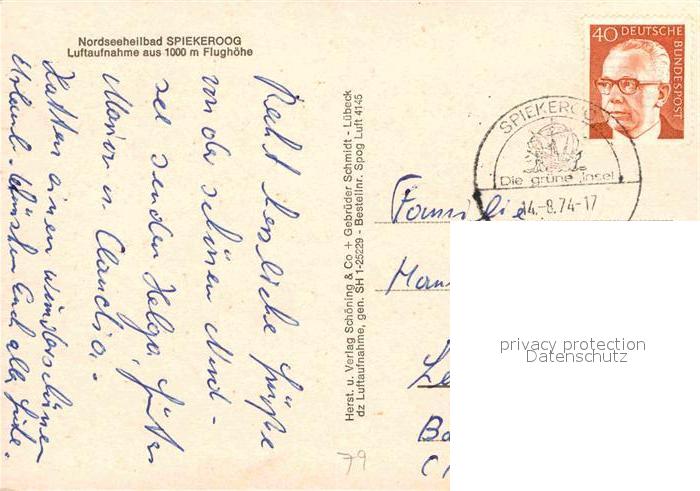 Nordseeheilbad SPIEKEROOG
Luftaufnahme aus 1000 m Flughöhe
Recht herzliche Grüße
von der schönen Nord-
see senden Helga, Günter
Marion u. Claudia.
Hatten einen wunderschönen
Urlaub. Wünschen Euch alles Gute.
Herst. u. Verlag Schöning & Co + Gebrüder Schmidt - Lübeck
dz Luftaufnahme, gen. SH 1-25229 - Bestellnr. Spog Luft 4145
40 DEUTSCHE
BUNDESPOST
SPIEKEROO
Die grüne Insel
14.-8.74-17
Familie
79
privacy protection
Datenschutz